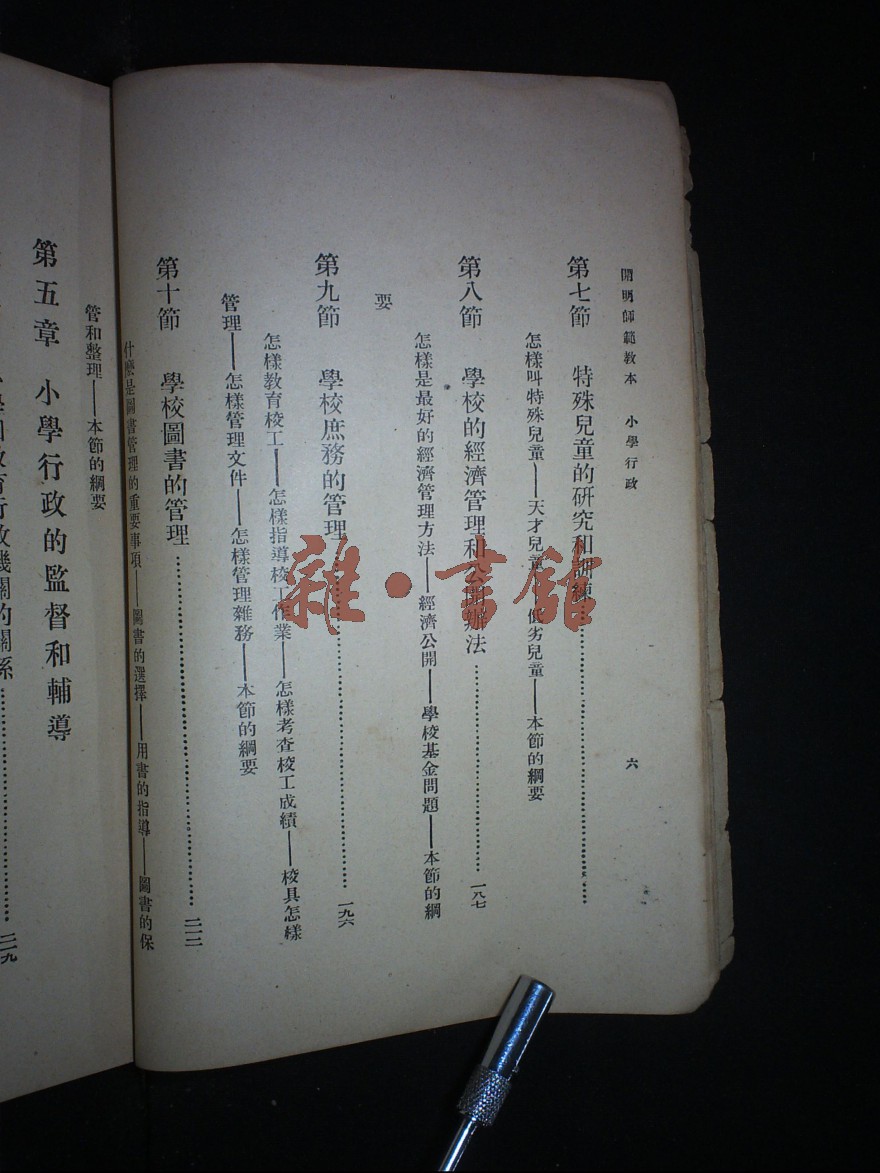 開明師範教本　小學行政　六
第七節　特殊兒童的研究和訓練……
怎樣叫特殊兒童——天才兒童——低劣兒童——本節的綱要
第八節　學校的經濟管理和公開辦法……一八七
怎樣是最好的經濟管理方法——經濟公開——學校基金問題——本節的綱
要
第九節　學校庶務的管理……一九六
怎樣教育校工——怎樣指導校工作業——怎樣考查校工成績——校具怎樣
管理——怎樣管理文件——怎樣管理雜務——本節的綱要
第十節　學校圖書的管理……二一二
什麼是圖書管理的重要事項——圖書的選擇——用書的指導——圖書的保
管和整理——本節的綱要
第五章　小學行政的監督和輔導
教育行政機關的關係……二一九
雜·書館